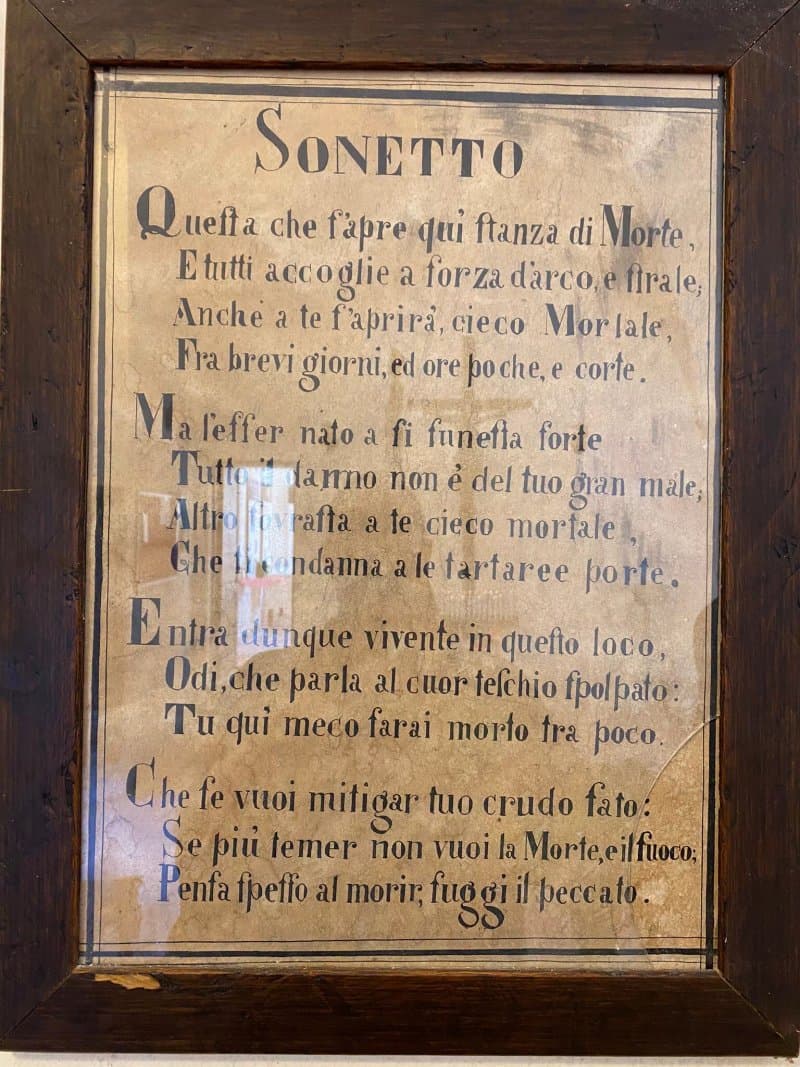 SONETTO
Queſta che ſ'apre quì ſtanza di Morte,
E tutti accoglie a forza d'arco, e ſtrale;
Anche a te ſ'aprirà, cieco Mortale,
Fra brevi giorni, ed ore poche, e corte.
Ma l'eſſer nato a ſi funeſta ſorte
Tutto il danno non è del tuo gran male;
Altro ſovraſta a te cieco mortale,
Che ti condanna a le tartaree porte.
Entra dunque vivente in queſto loco,
Odi, che parla al cuor teſchio ſpolpato:
Tu quì meco ſarai morto tra poco.
Che ſe vuoi mitigar tuo crudo fato:
Se più temer non vuoi la Morte, e il fuoco;
Penſa ſpeſſo al morir, fuggi il peccato.